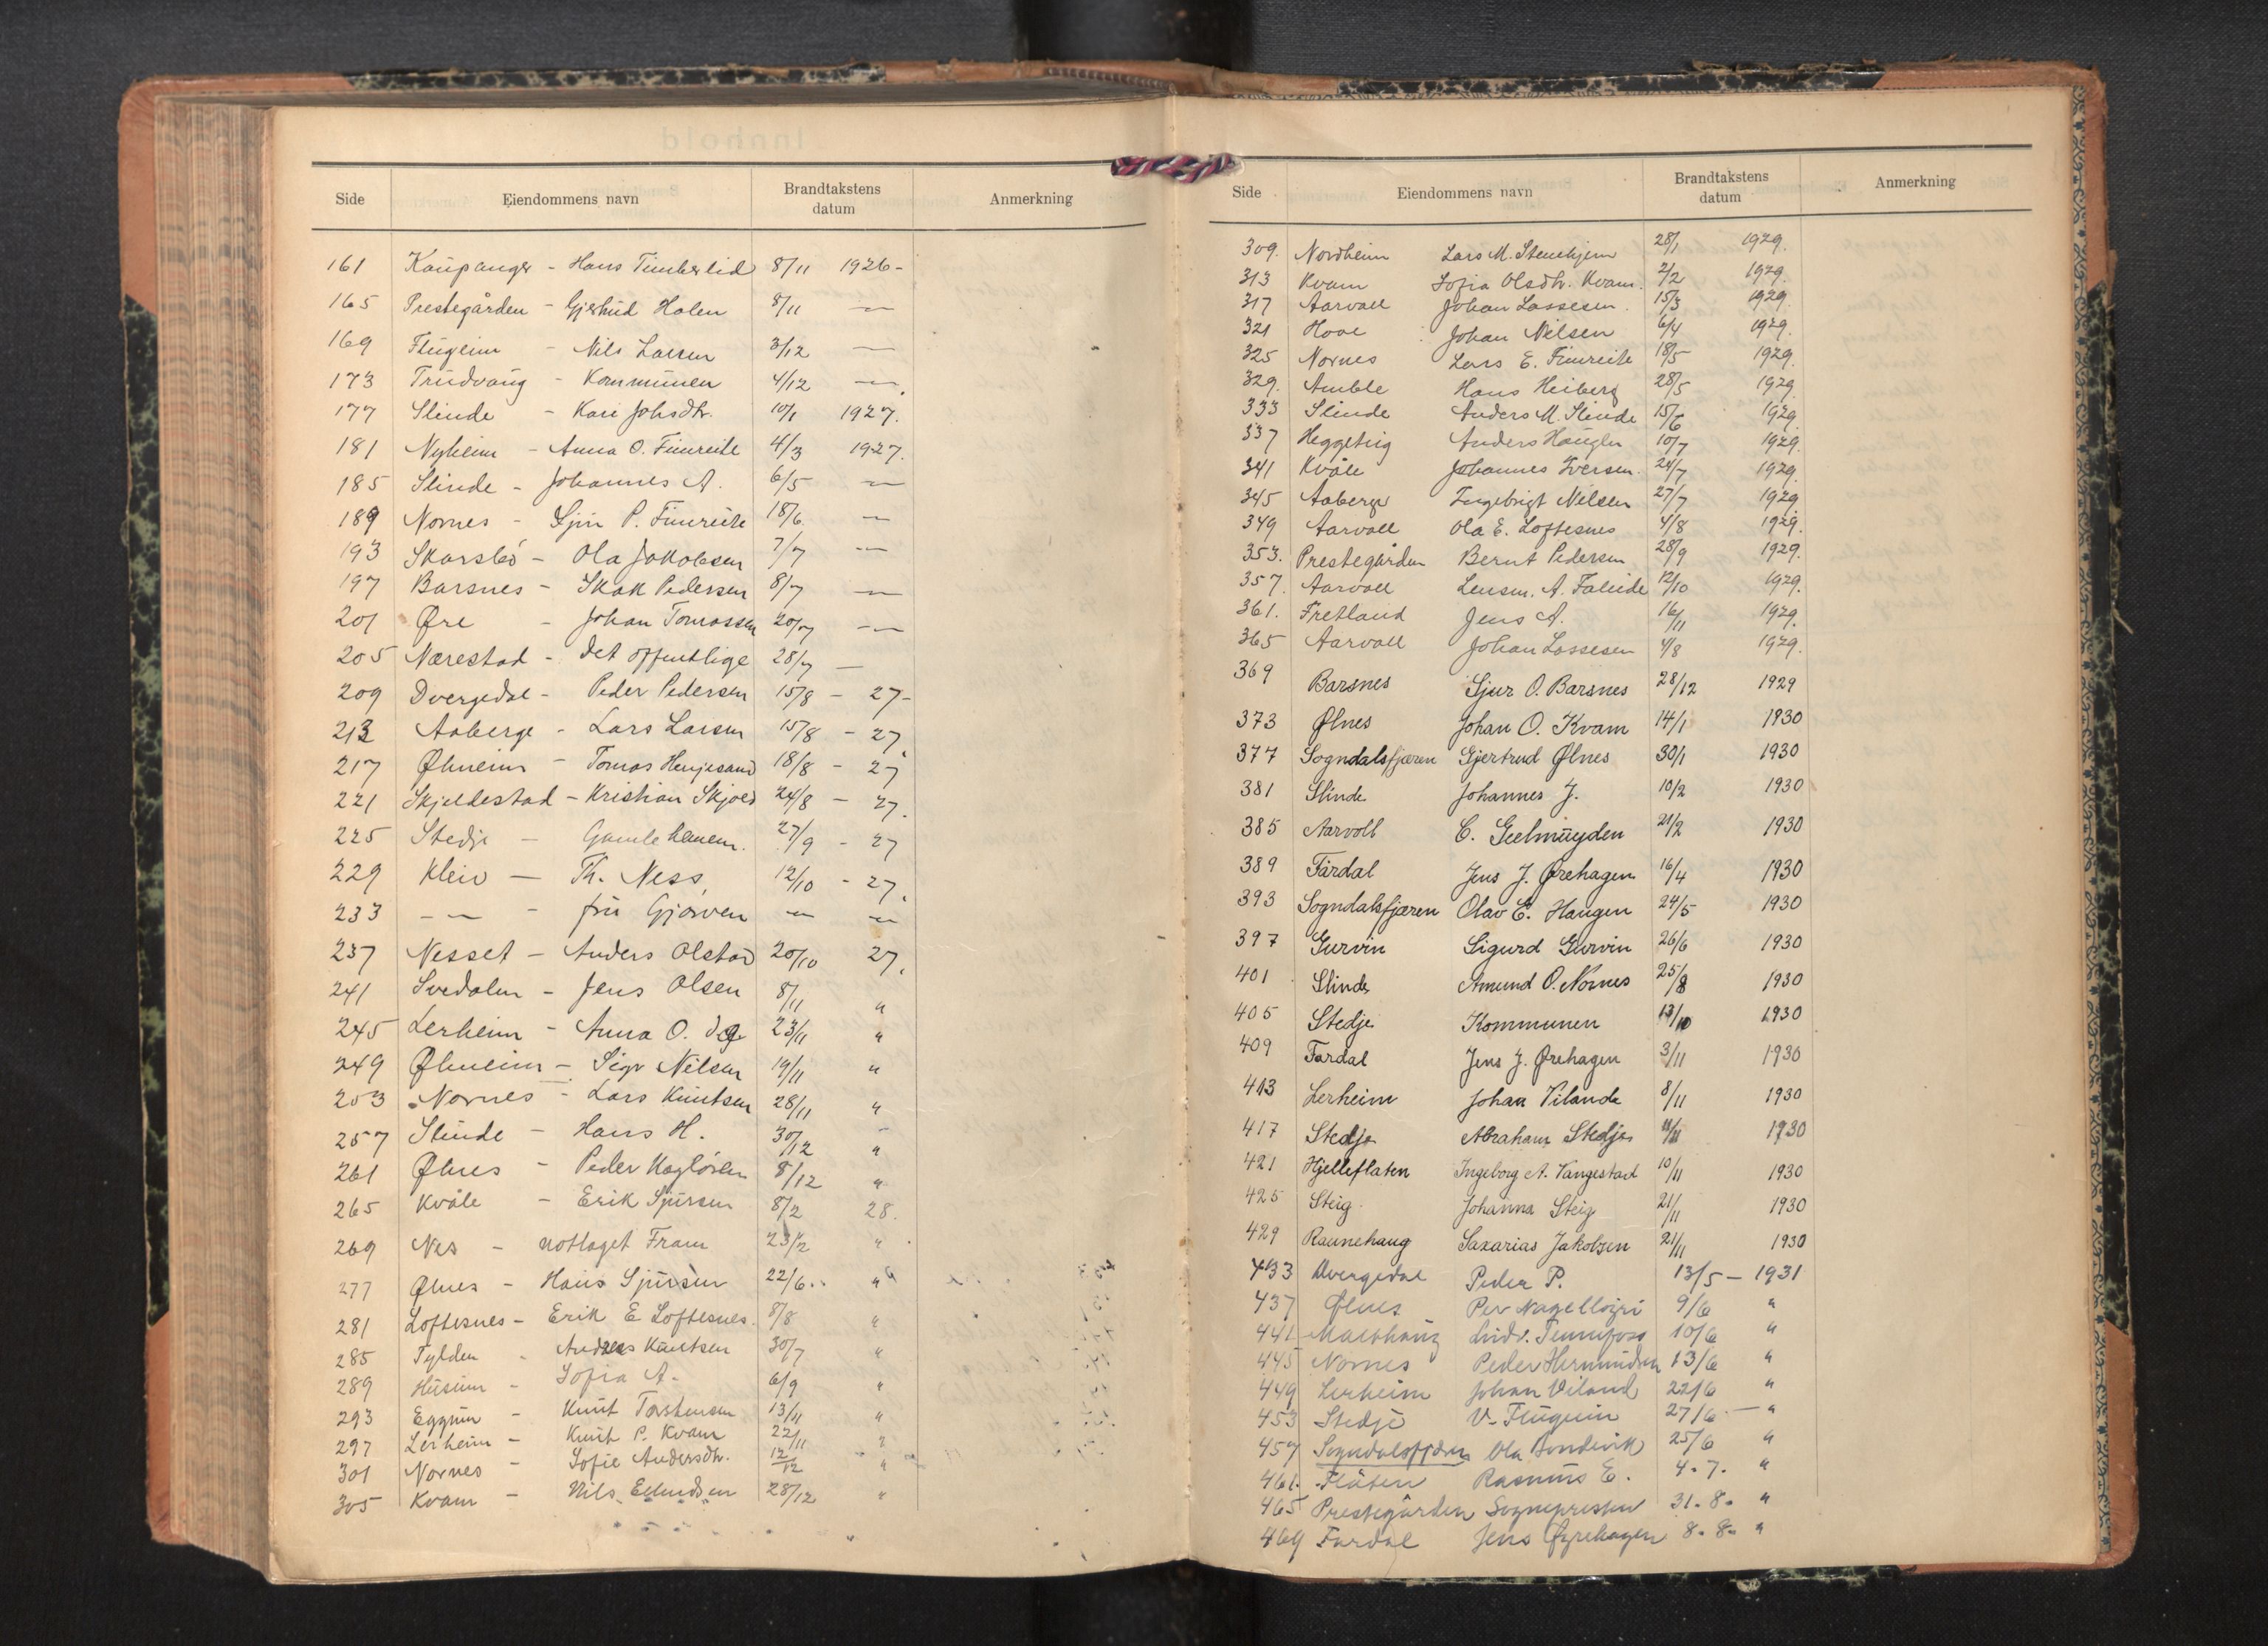 Side Eiendommens navn Brandtakstens datum Anmerkning
161 Kaupanger - Hans Timberlid 8/11 1926-
165 Prestegården - Gjertrud Holen 8/11 —
169 Flugeim - Nils Larsen 3/12 —
173 Trudvang - Kommunen 4/12 —
177 Slinde - Kari Johsdtr. 10/1 1927.
181 Nyheim - Anna O. Fimreite 4/3 1927.
185 Slinde - Johannes A. 6/5 —
189 Nornes - P. Fimreite 18/6 —
193 Skarsbö - Ola Jakobsen 7/7 —
197 Barsnes - Skak Pedersen 8/7 —
201 Øre - Johan Tomassen 20/7 —
205 Nærestad - det offentlige 28/7 —
209 Dvergedal - Peder Pedersen 15/8 - 27-
213 Aaberge - Lars Larsen 15/8 - 27.
217 Ølmeim - Tomas Henjesand 18/8 - 27
221 Skjeldestad - Kristian Skjeld 24/8 - 27.
225 Stedje - Gamleheimen. 27/9 - 27
229 Kleiv — Th. Ness, 12/10 - 27.
233 - — - fru Gjørven — —
237 Nesset - Anders Olstad 20/10 27.
241 Svedalen - Jens Olsen 8/11 "
245 Lerheim - Anna O. 23/11 "
249 Ølmeim - Sigv Nilsen 19/11 "
253 Nornes - Lars Knutsen 28/11 "
257 Slinde - Hans H. 30/12 "
261 Ølnes - Peder Nagløren 8/12 "
265 Kvåle - Erik Sjursen 8/2 28.
269 Nes - notlaget Fram 23/2 "
277 Ølnes - Hans Sjursen 22/6 "
281 Loftesnes - Erik E Loftesnes. 8/8 "
285 Tylden - Andreas Knutsen 30/7 "
289 Husum - Sofia A. 6/9 "
293 Eggum - Knut Torstensen 13/11 "
297 Lerheim - Knut P. Kvam 22/11 "
301 Nornes - Sofie Andersdtr. 12/12 "
305 Kvam - Nils Erlendsen 28/12 "
Side Eiendommens navn Brandtakstens datum Anmerkning
309. Nordheim Lars M. Stenehjem 28/1 1929.
313 Kvam Sofia Olsdtr. Kvam. 2/2 1929.
317 Aarvoll Johan Lassesen. 15/3 1929.
321 Hove Johan Nilsen 6/4 1929.
325 Nornes Lars E. Fimreite 18/5 1929.
329. Amble Hans Heiberg 28/5 1929.
333 Slinde Anders M. Slinde 15/6 1929.
337 Heggetvig Anders Haugen 10/7 1929.
341 Kvåle Johannes Iversen. 24/7 1929.
345 Aaberge Ingebrigt Nilsen 27/7 1929.
349 Aarvoll Ola E. Loftesnes 4/8 1929.
353. Prestegården Bernt Pedersen 28/9 1929.
357. Aarvoll Lensm. A. Faleide 12/10 1929.
361. Fretland Jens A. 16/11 1929.
365 Aarvoll Johan Lassesen 4/8 1929.
369 Barsnes Sjur O. Barsnes 28/12 1929
373 Ølnes Johan O. Kvam 14/1 1930
377 Sogndalsfjæren Gjertrud Ølnes 30/1 1930
381 Slinde Johannes J. 10/2 1930
385 Aarvoll C. Geelmuyden 21/2 1930
389 Fardal Jens J. Ørehagen 16/4 1930
393 Sogndalsfjæren Olav E. Haugen 24/5 1930
397 Gurvin Sigurd Gurvin 26/6 1930
401 Slinde Amund O. Nornes 25/8 1930
405 Stedje Kommunen 13/10 1930
409 Fardal Jens J. Ørehagen 3/11 1930
413 Lerheim Johan Vilande 8/11 1930
417 Stedje Abraham Stedje 11/11 1930
421 Hjelleflaten Ingeborg A. Vangestad 10/11 1930
425 Steig Johanna Steig 21/11 1930
429 Raunehaug Saxarias Jakobsen 21/11 1930
433 Dvergedal Peder P. 13/5 - 1931
437 Ølnes Per Nagelløyri 9/6 "
441 Ludv. Tennefoss 10/6 "
445 Nornes Peder Hermundsen 13/6 "
449 Lerheim Johan Viland 22/6 "
453 Stedje V. Flugeim 27/6 — "
457 Sogndalsfjæren Ola Bondevik 25/6 "
461. Flåten Rasmus E. 4.7. "
465 Prestegården Sognepresten 31.8. "
469 Fardal Jens Øyrehagen 8.8. "